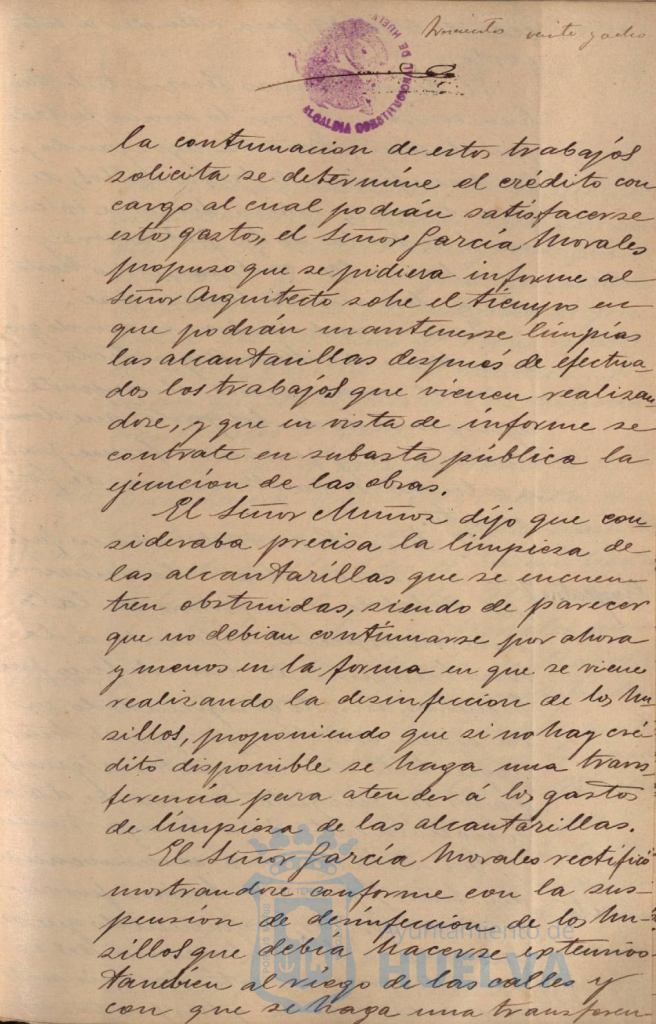 veinte y ocho
ALCALDIA CONSTITUCIONAL DE HUELVA
la continuacion de estos trabajos
solicita se determine el crédito con
cargo al cual podrán satisfacerse
estos gastos, el Señor García Morales
propuso que se pidiera informe al
Señor Arquitecto sobe el tiempo en
que podrán mantenerse limpias
las alcantarillas después de efectua-
dos los trabajos que vienen realizan
dose, y que en vista de informe se
contrate en subasta pública la
ejecución de las obras.
El Señor Muñoz dijo que con
sideraba precisa la limpieza de
las alcantarillas que se encuen-
tren obstruidas, siendo de parecer
que no debian continuarse por ahora
y menos en la forma en que se viene
realizando la desinfeccion de los hu-
sillos, proponiendo que si no hay cré-
dito disponible se haga una trans-
ferencia para atender á los gastos
de limpieza de las alcantarillas.
El Señor García Morales rectificó
mostrandose conforme con la sus-
pensión de desinfección de los hu-
sillos que debía hacerse extensivo
tambien al riego de las calles y
con que se haga una transferen-
Ayuntamiento de
HUELVA